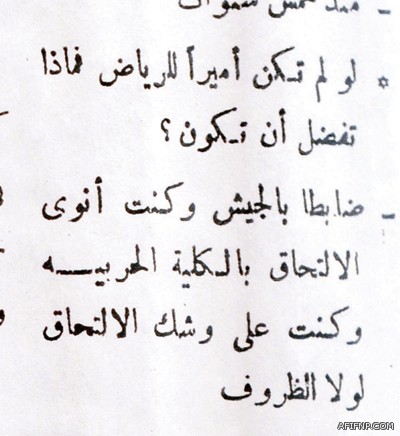 - منذ خمس سنوات
* لو لم تكن أميراً للرياض فماذا
تفضل أن تكون؟
- ضابطا بالجيش وكنت أنوى
الالتحاق بالكلية الحربيـــه
وكنت على وشك الالتحاق
لولا الظروف
AFIFNP.COM